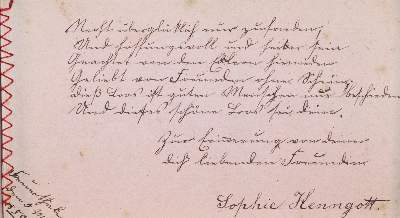 Nicht überglücklich nur zufrieden,
Und hoffnungsvoll und heiter sein
Geachtet von den Edlern hienieden
Geliebt von Freunden ohne Schein;
Dieß Loos ist guten Menschen nur beschieden
Und dieses schöne Loos sei dein.
Zur Erinnerung von deiner
dich liebenden Freundin
Sophie Henngott.